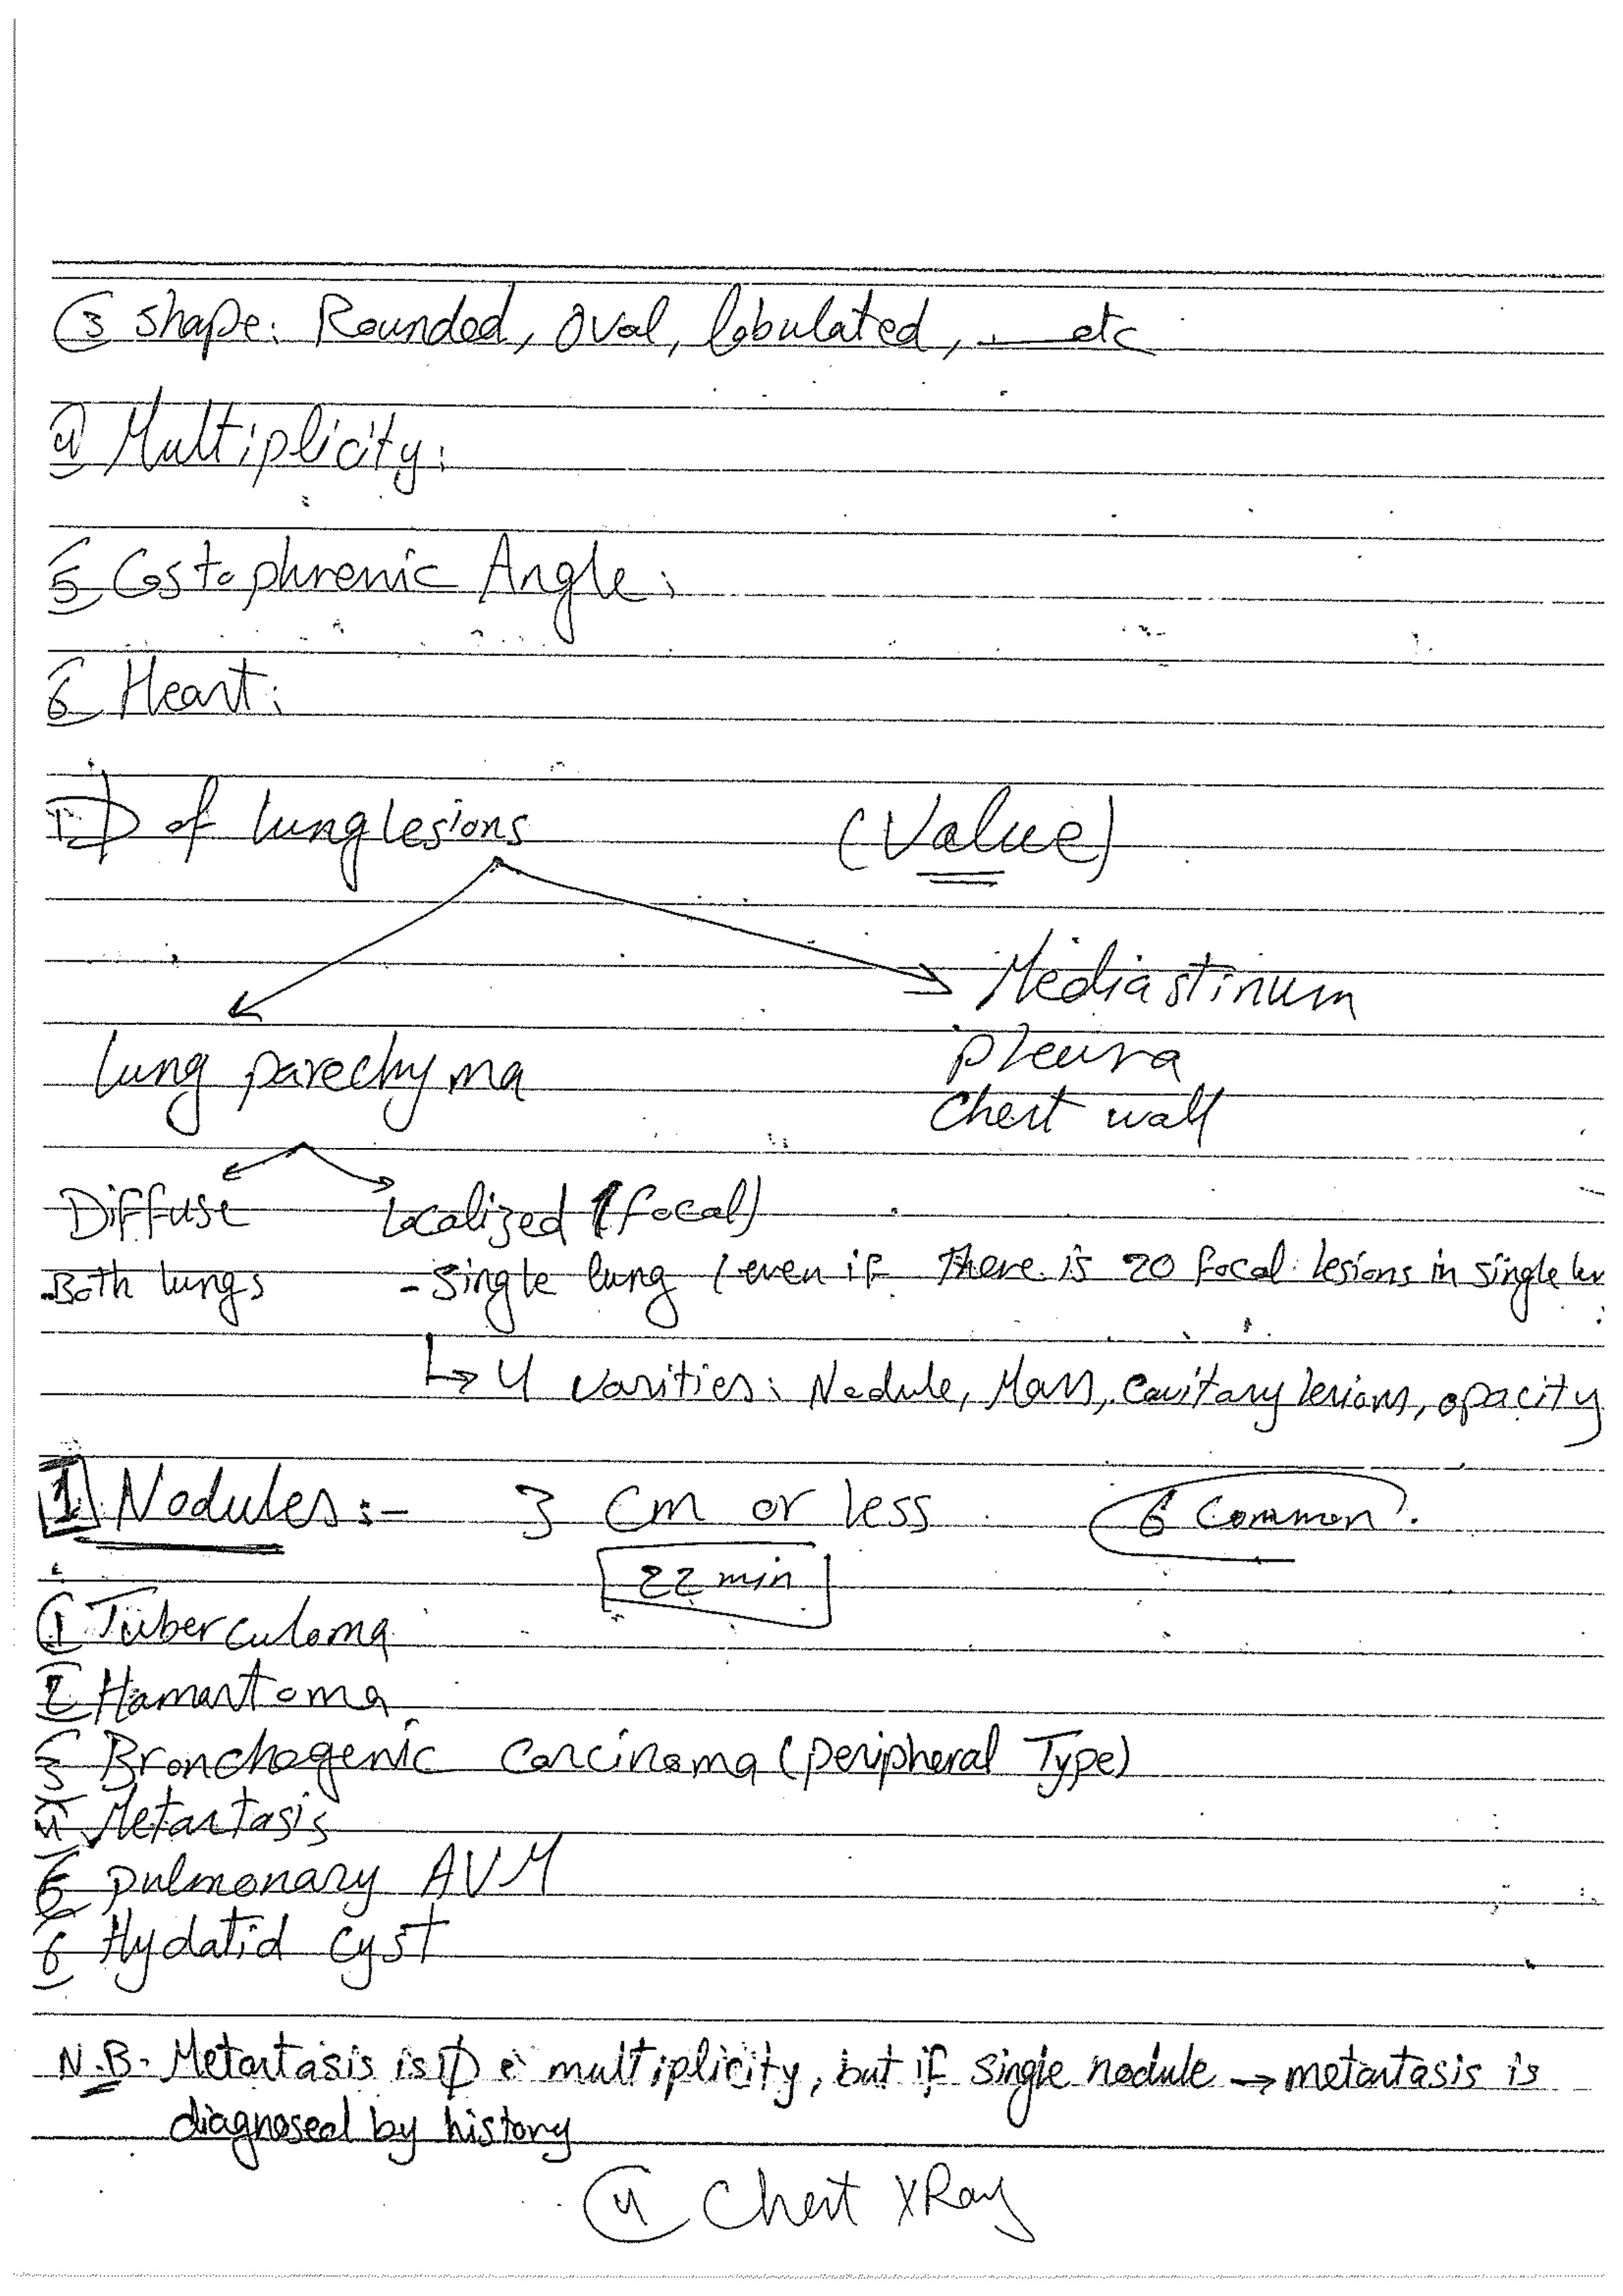 3 shape: Rounded, Oval, lobulated, ... etc
4 Multiplicity:
5 Costophrenic Angle:
6 Heart:
of lung lesions (Value)
Mediastinum
lung parechyma
pleura
Chest wall
Diffuse Localized (focal)
Both lungs - single lung (even if there is 20 focal lesions in single
↳ 4 varities: Nodule, Mass, Cavitary lesions, opacity
1 Nodules:- 3 cm or less 6 Common
22 min
1 Tuberculoma
2 Hamartoma
3 Bronchogenic Carcinoma (peripheral Type)
4 Metastasis
5 pulmonary AVM
6 Hydatid cyst
N.B. Metastasis is multiplicity, but if single nodule → metastasis is
diagnosed by history
4 Chest XRay